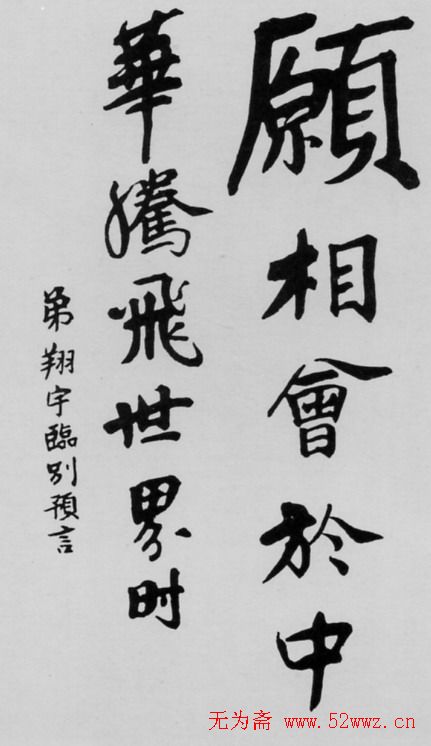 願相會於中
華騰飛世界时
弟翔宇臨别預言
无为斋 www.52wwz.cn